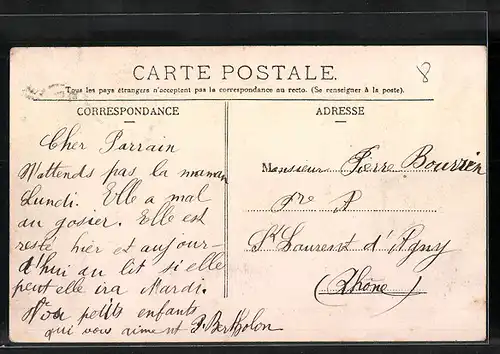 CARTE POSTALE.
Tous les pays étrangers n'acceptent pas la correspondance au recto. (Se renseigner à la poste).
8
CORRESPONDANCE
Cher Parrain
N'attends pas la maman
Lundi. Elle a mal
au gosier. Elle est
reste hier et aujour-
d'hui au lit si elle
peut elle ira Mardi.
Vos petits enfants
qui vous aiment P. Berthelon
ADRESSE
Monsieur Pierre Bourrien
St Laurent d'Agny
(Rhône)